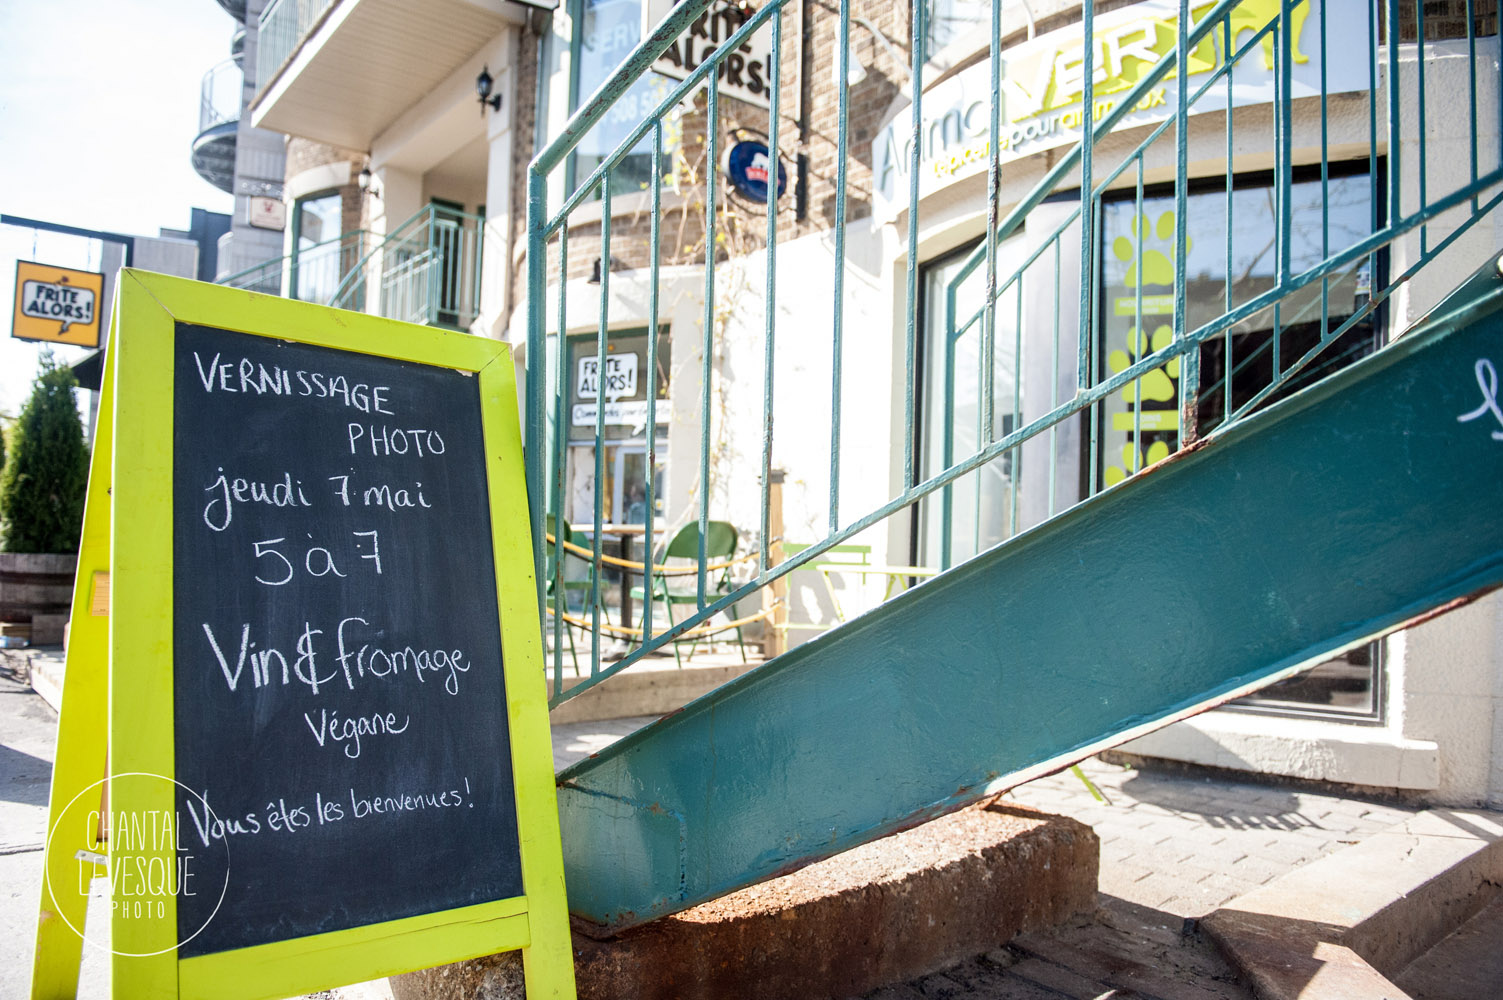 VERNISSAGE
PHOTO
jeudi 7 mai
5 à 7
Vin & fromage
Végane
Vous êtes les bienvenues!
CHANTAL
LEVESQUE
PHOTO
FRITE
ALORS!
FRITE
ALORS!
FRITE
ALORS!
AnimaVERT
épicerie pour animaux